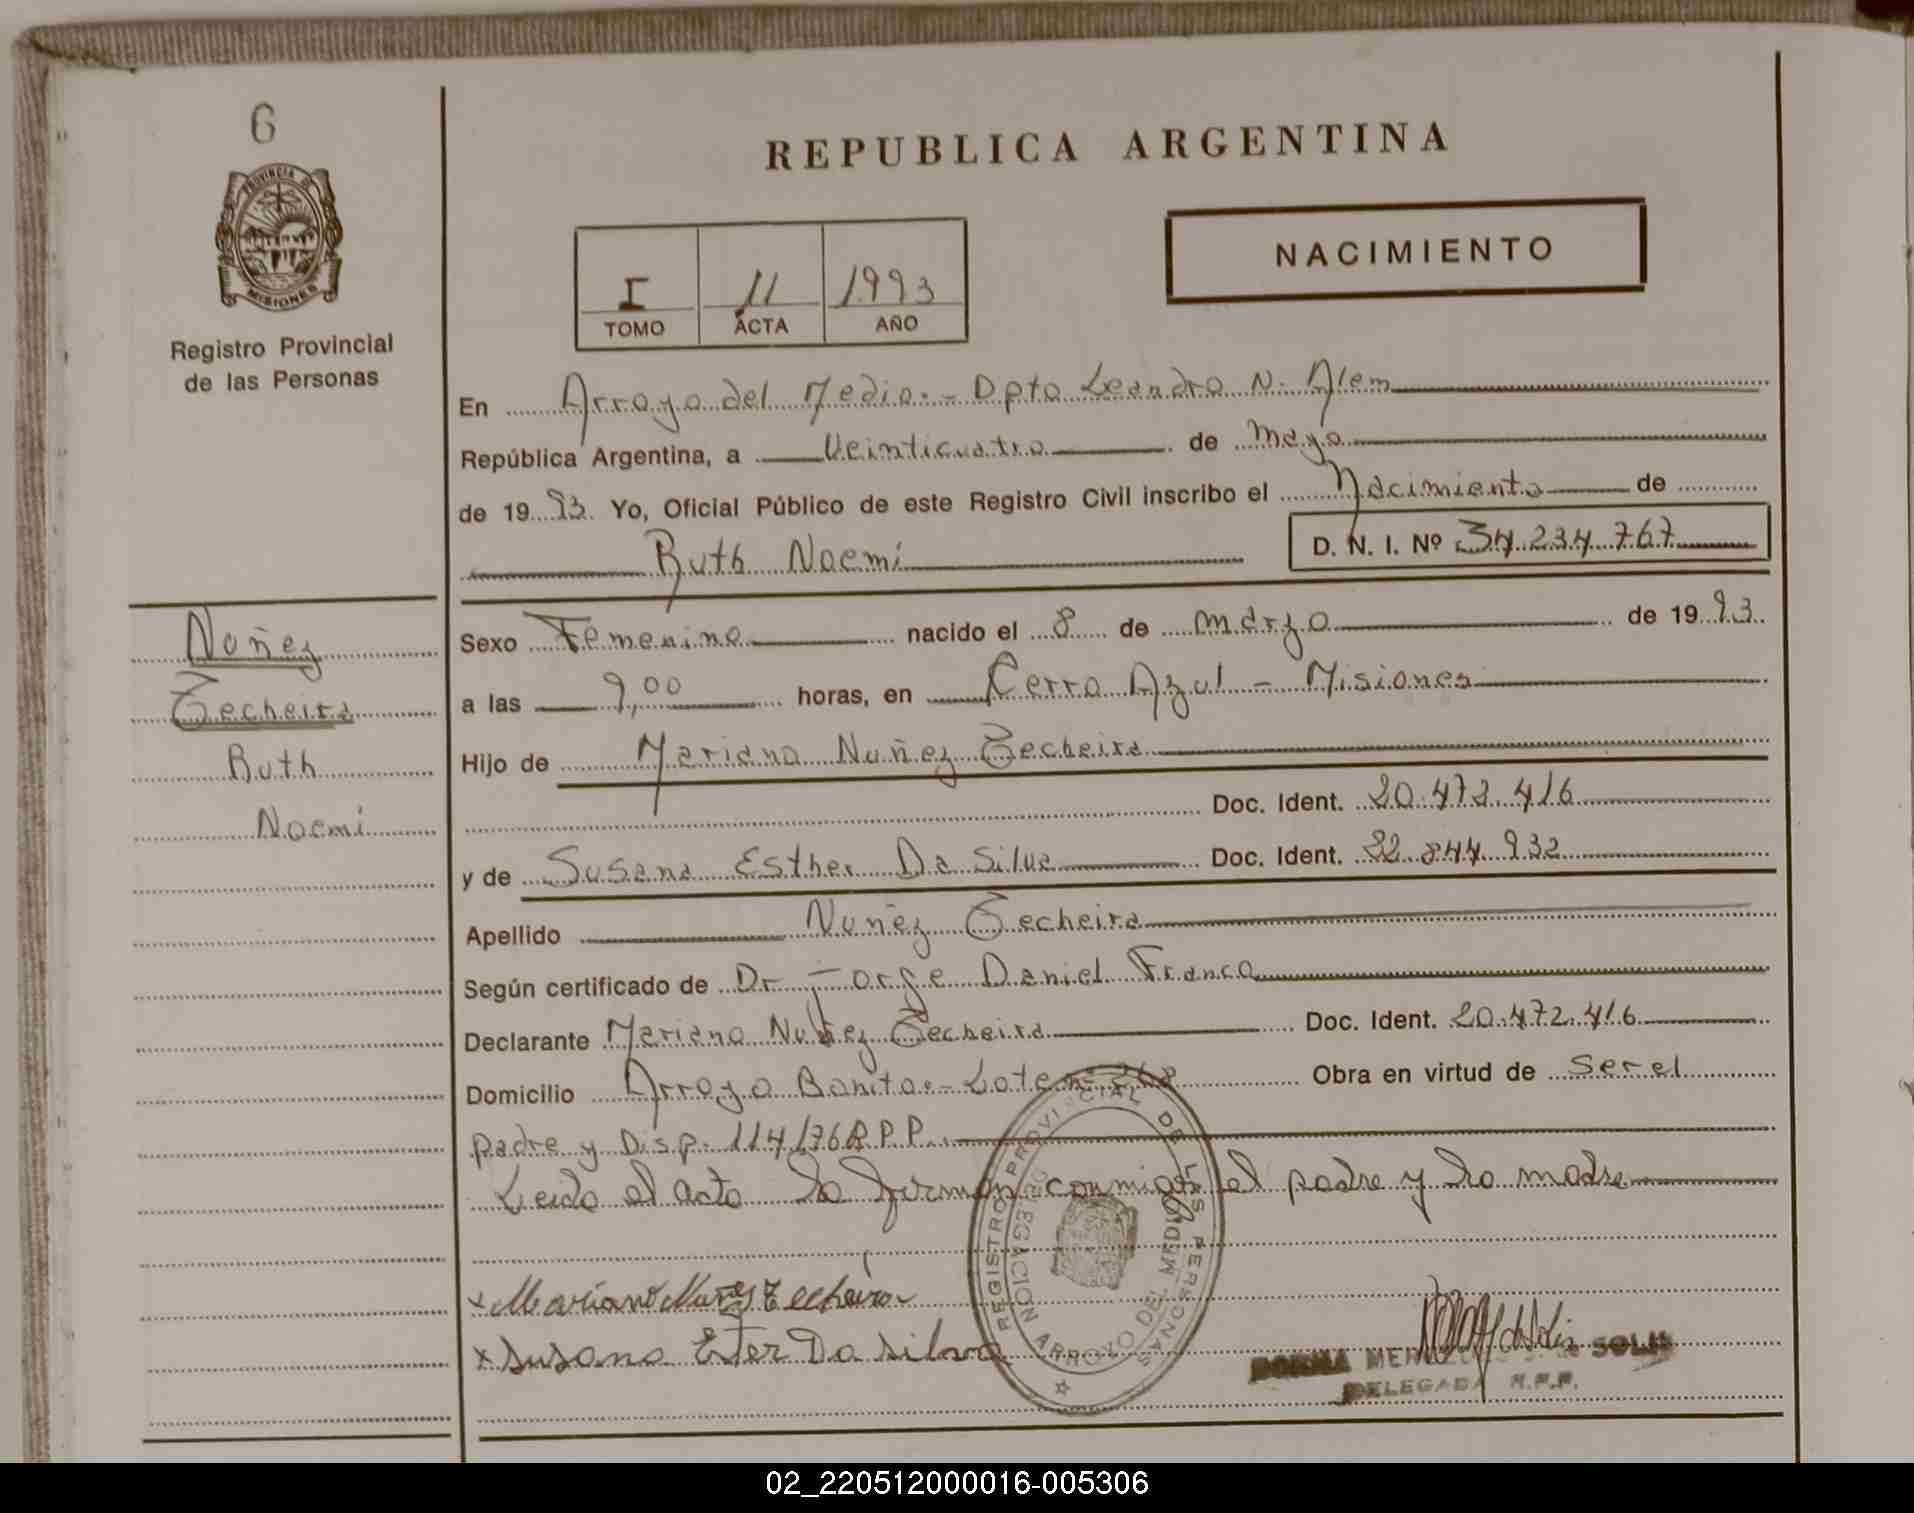 6
PROVINCIA DE
MISIONES
Registro Provincial
de las Personas
Nuñez
Zecheira
Ruth
Noemi
REPUBLICA ARGENTINA
NACIMIENTO
I 11 1993
TOMO ACTA AÑO
En Arroyo del Medio.- Dpto Leandro N. Alem
República Argentina, a Veinticuatro de Mayo
de 1993 Yo, Oficial Público de este Registro Civil inscribo el Nacimiento de
Ruth Noemi D. N. I. Nº 34.234.767
Sexo Femenino nacido el 8 de Marzo de 1993
a las 9,00 horas, en Cerro Azul - Misiones
Hijo de Mariano Nuñez Zecheira
Doc. Ident. 20.472.416
y de Susana Esther Da Silva Doc. Ident. 22.844.932
Apellido Nuñez Zecheira
Según certificado de Dr Jorge Daniel Franco
Declarante Mariano Nuñez Zecheira Doc. Ident. 20.472.416
Domicilio Arroyo Bonito.- Lote nº 268 Obra en virtud de Ser el
padre y Disp. 114/76 R.P.P.
Leido el acta la firman conmigo el padre y la madre
x Mariano Nuñez Zecheira
x Susana Ester Da Silva
REGISTRO PROVINCIAL DE LAS PERSONAS
DELEGACION ARROYO DEL MEDIO
NORMA SOLIS
DELEGADA R.P.P.
02_220512000016-005306